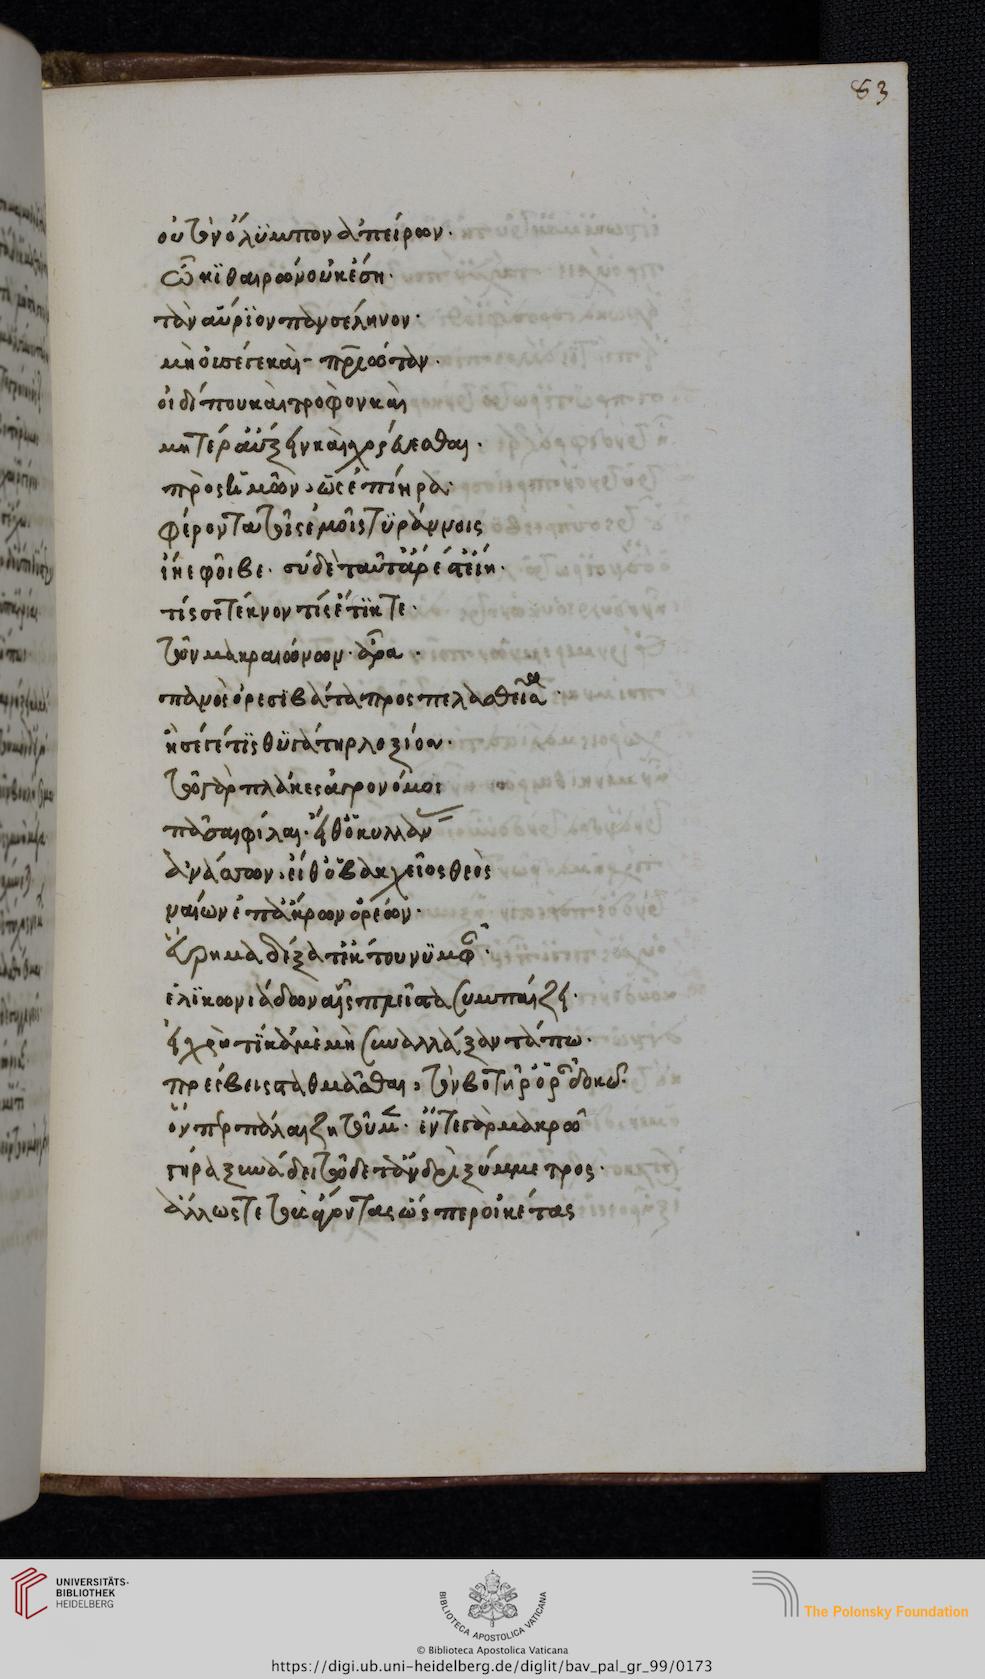 83
οὐ τὸν ὄλϋμπον ἀπείρων·
ὦ κϊθαιρων οὐκ ἔση·
τὰν αὔρϊον πανσέληνον·
μὴ οὐ σέ γε καὶ πατριώταν·
οἰδίπου καὶ τροφὸν καὶ
μητέρ αὔξειν καὶ χορεύεσθαι·
πρὸς ἡμῶν, ὡς ἐπίηρα·
φέροντα τοῖς ἐμοῖς τϋράννοις
ἰήϊε φοῖβε· σοὶ δὲ ταῦτ ἀρέστ εἴη·
τίς σε τέκνον τίς ἔτϊκτε·
τῶν μακραιώνων· ἆρα·
πανὸς ὀρεσϊβάτα προσπελασθεῖσα·
ἢ σέ γέ τϊς θϋγάτηρ λοξίου·
τῷ γὰρ πλάκες ἀγρονόμοι
πᾶσαι φίλαι· εἴθ ὁ κυλλάν
ἀνάσσων, εἴθ ὁ βακχεῖος θεὸς
ναίων ἐπ ἄκρων ὀρέων·
εὕρημα δέξατ ἔκ του νϋμφῶν·
ἑλϊκωνιάδων αἷς πλεῖστα συμπαίζει·
εἰ χρή τϊ κἀμὲ μὴ συναλλάξαντά πω·
πρέσβεις σταθμᾶσθαι, τὸν βοτῆρ ὁρᾶν δοκῶ
ὅνπερ πάλαι ζητοῦμεν· ἔν τε γὰρ μακρῷ
γήρᾳ ξυνάδει τῷδε τἀνδρὶ ξύμμετρος·
ἄλλως τε τοὺς ἄγοντας ὥσπερ οἰκέτας
UNIVERSITÄTS-
BIBLIOTHEK
HEIDELBERG
BIBLIOTECA APOSTOLICA VATICANA
The Polonsky Foundation
© Biblioteca Apostolica Vaticana
https://digi.ub.uni-heidelberg.de/diglit/bav_pal_gr_99/0173